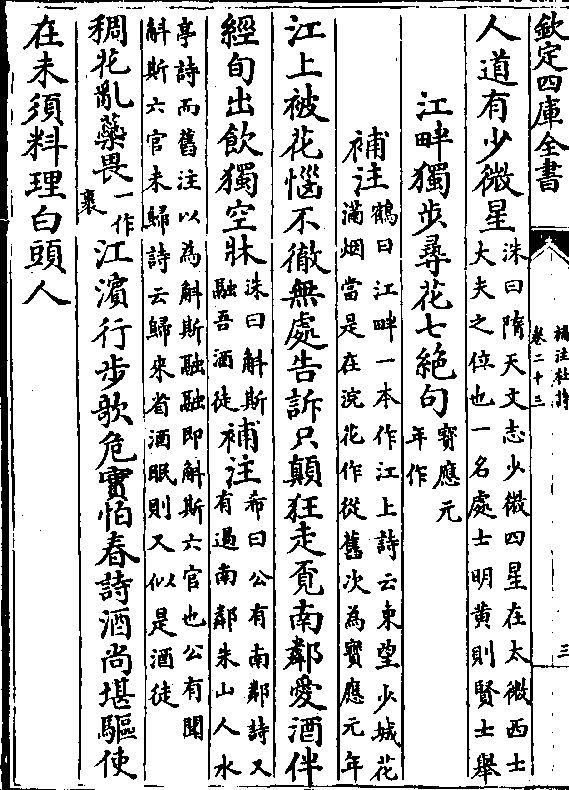 欽定四庫全書
補注杜詩
卷二十三
三
人道有少微星洙曰隋天文志少微四星在太微西士
大夫之位也一名處士明黄則賢士舉
江畔獨步尋花七絶句寳應元
年作
補注鶴曰江畔一本作江上詩云東望少城花
滿烟當是在浣花作從舊次為寳應元年
江上被花惱不徹無處告訴只顛狂走覓南鄰愛酒伴
經旬出飲獨空牀洙曰斛斯
融吾酒徒補注希曰公有南鄰詩又
有過南鄰朱山人水
亭詩而舊注以為斛斯融融即斛斯六官也公有聞
斛斯六官未歸詩云歸來省酒眠則又似是酒徒
稠花亂蘂畏一作
裹江濱行步欹危實怕春詩酒尚堪驅使
在未須料理白頭人